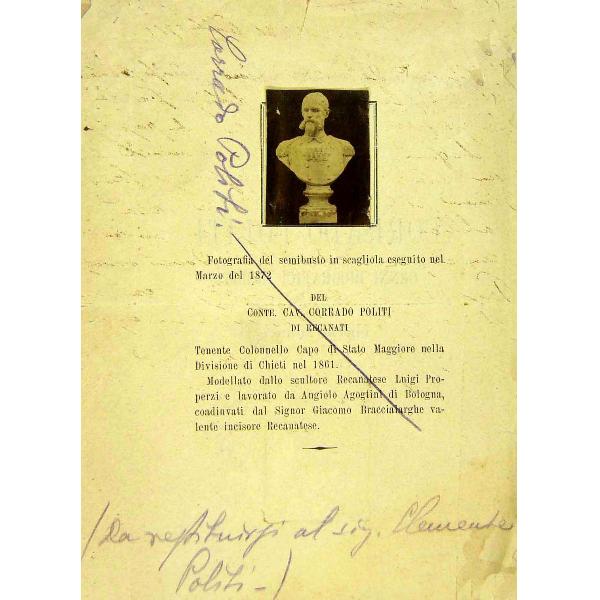 Corrado Politi
Fotografia del semibusto in scagliola eseguito nel
Marzo del 1872
DEL
CONTE CAV. CORRADO POLITI
DI RECANATI
Tenente Colonnello Capo di Stato Maggiore nella
Divisione di Chieti nel 1861.
Modellato dallo scultore Recanatese Luigi Pro-
perzi e lavorato da Angiolo Agostini di Bologna,
coadiuvati dal Signor Giacomo Braccialarghe va-
lente incisore Recanatese.
(Da restituirsi al sig. Clemente
Politi-)